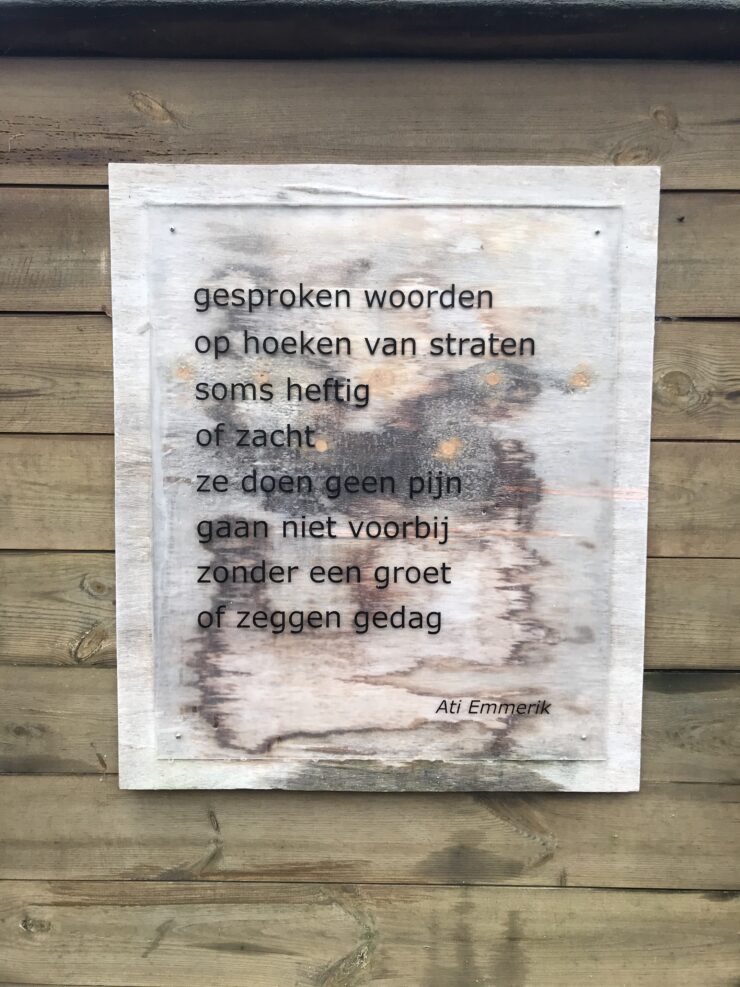 gesproken woorden
op hoeken van straten
soms heftig
of zacht
ze doen geen pijn
gaan niet voorbij
zonder een groet
of zeggen gedag
Ati Emmerik